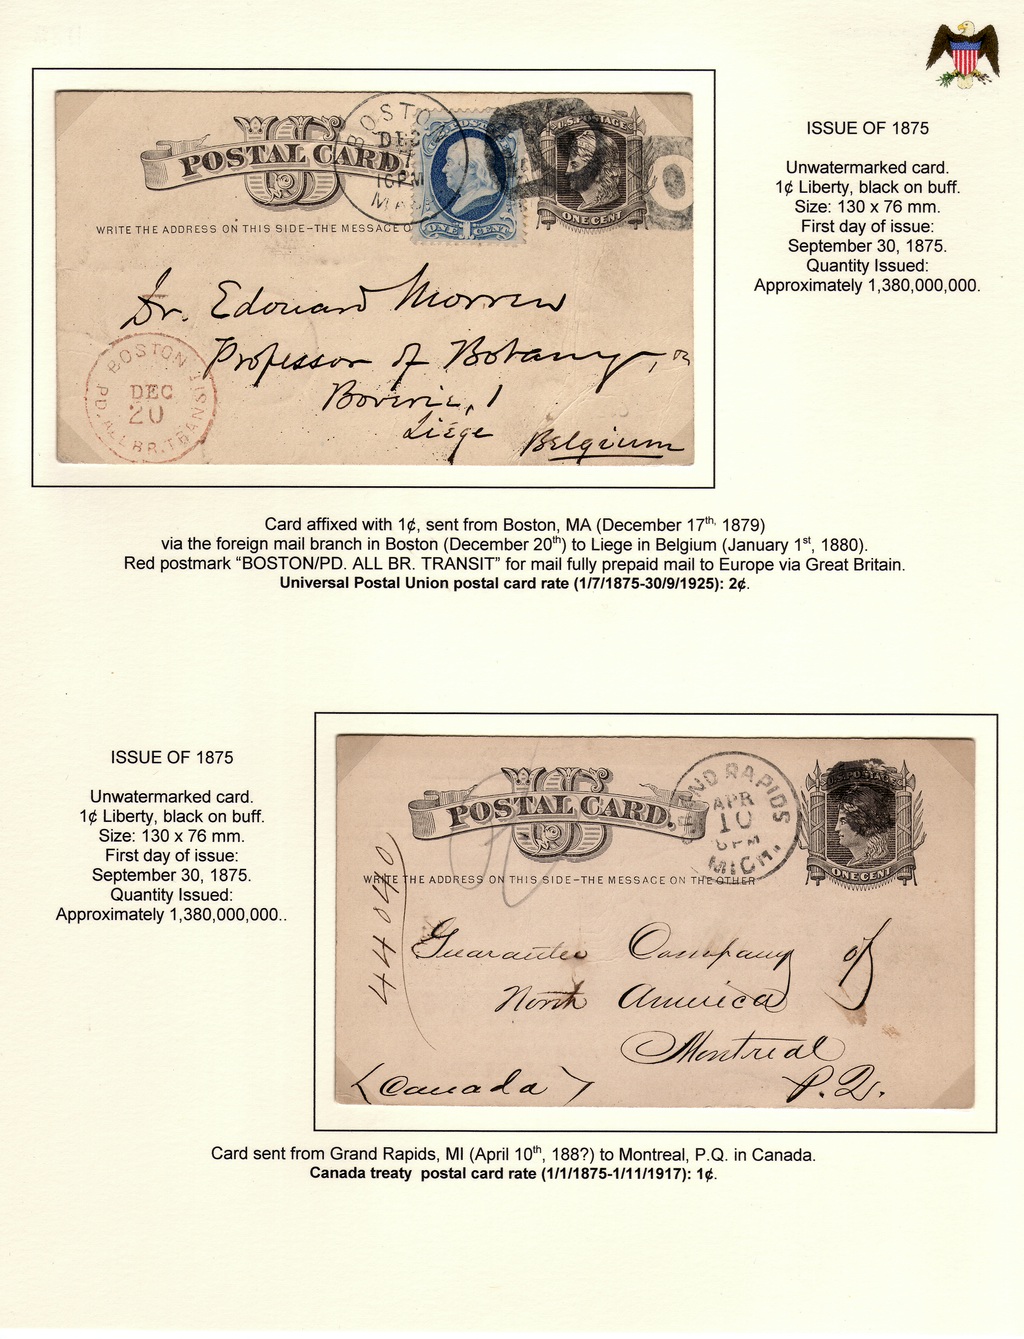 ISSUE OF 1875
Unwatermarked card.
1¢ Liberty, black on buff.
Size: 130 x 76 mm.
First day of issue:
September 30, 1875.
Quantity Issued:
Approximately 1,380,000,000.
US
POSTAL CARD.
WRITE THE ADDRESS ON THIS SIDE-THE MESSAGE O
BOSTO
DEC
17
10PM
MASS
ONE CENT
U.S. POSTAGE
ONE CENT
Dr. Edouard Morren
Professor of Botany,
Boverie, 1
Liége
Belgium
BOSTON
DEC
20
PD. ALL BR. TRANSIT
Card affixed with 1¢, sent from Boston, MA (December 17th, 1879)
via the foreign mail branch in Boston (December 20th) to Liege in Belgium (January 1st, 1880).
Red postmark “BOSTON/PD. ALL BR. TRANSIT” for mail fully prepaid mail to Europe via Great Britain.
Universal Postal Union postal card rate (1/7/1875-30/9/1925): 2¢.
ISSUE OF 1875
Unwatermarked card.
1¢ Liberty, black on buff.
Size: 130 x 76 mm.
First day of issue:
September 30, 1875.
Quantity Issued:
Approximately 1,380,000,000..
US
POSTAL CARD.
WRITE THE ADDRESS ON THIS SIDE-THE MESSAGE ON THE OTHER
GRAND RAPIDS
APR
10
6PM
MICH.
U.S. POSTAGE
ONE CENT
44040
Guarantee Company of
North America
Montreal
P.Q.
(Canada)
Card sent from Grand Rapids, MI (April 10th, 188?) to Montreal, P.Q. in Canada.
Canada treaty postal card rate (1/1/1875-1/11/1917): 1¢.